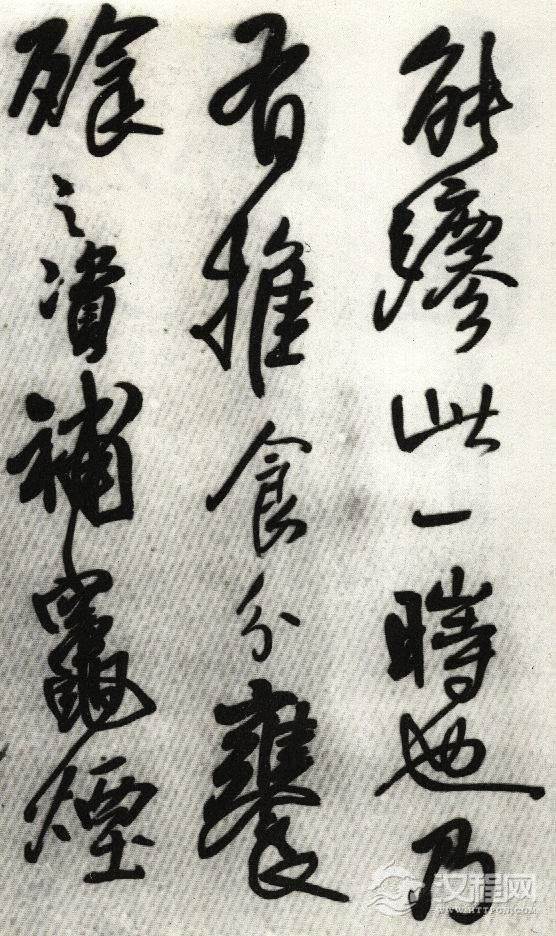 能此一時也乃
有推食分饔
飱之資補竈煙
汉程网
WWW.HTTPCN.COM